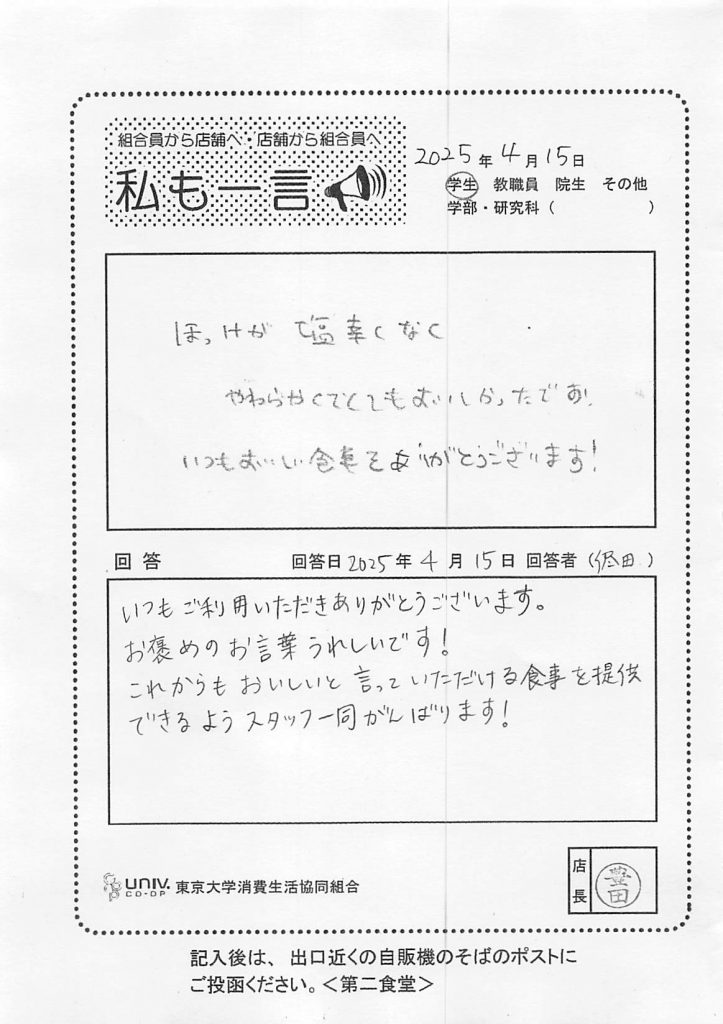 組合員から店舗へ・店舗から組合員へ
私も一言
2025年4月15日
学生 教職員 院生 その他
学部・研究科( )
ほっけが塩辛くなく
やわらやくてとてもおいしかったです。
いつもおいしい食事をありがとうございます!
回答 回答日2025年4月15日 回答者(田)
いつもご利用いただきありがとうございます。
お褒めのお言葉うれしいです!
これからもおいしいと言っていただける食事を提供
できるようスタッフ一同がんばります!
UNIV. CO-OP 東京大学消費生活協同組合
店長
豊田
記入後は、出口近くの自販機のそばのポストに
ご投函ください。<第二食堂>